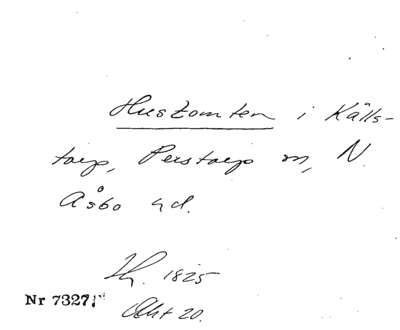 Hustomten i Källs-
torp, Perstorp sn, N.
Åsbo hd.
1825
Nr 7327.
Okt 20.